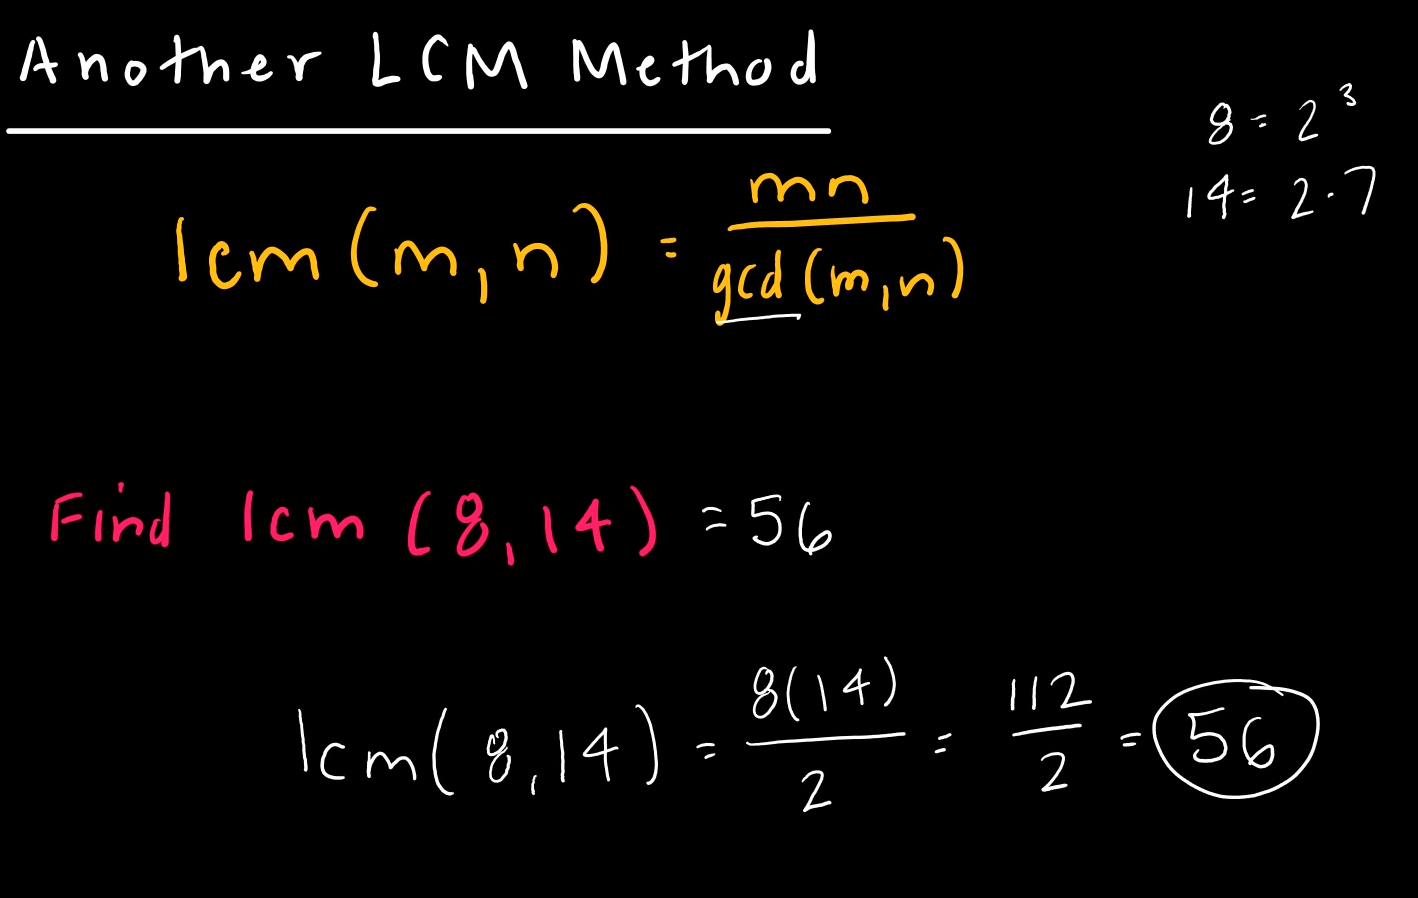 Another LCM Method
8 = 2³
14 = 2·7
lcm(m,n) = mn / gcd(m,n)
Find lcm (8,14) = 56
lcm(8,14) = 8(14) / 2 = 112 / 2 = 56